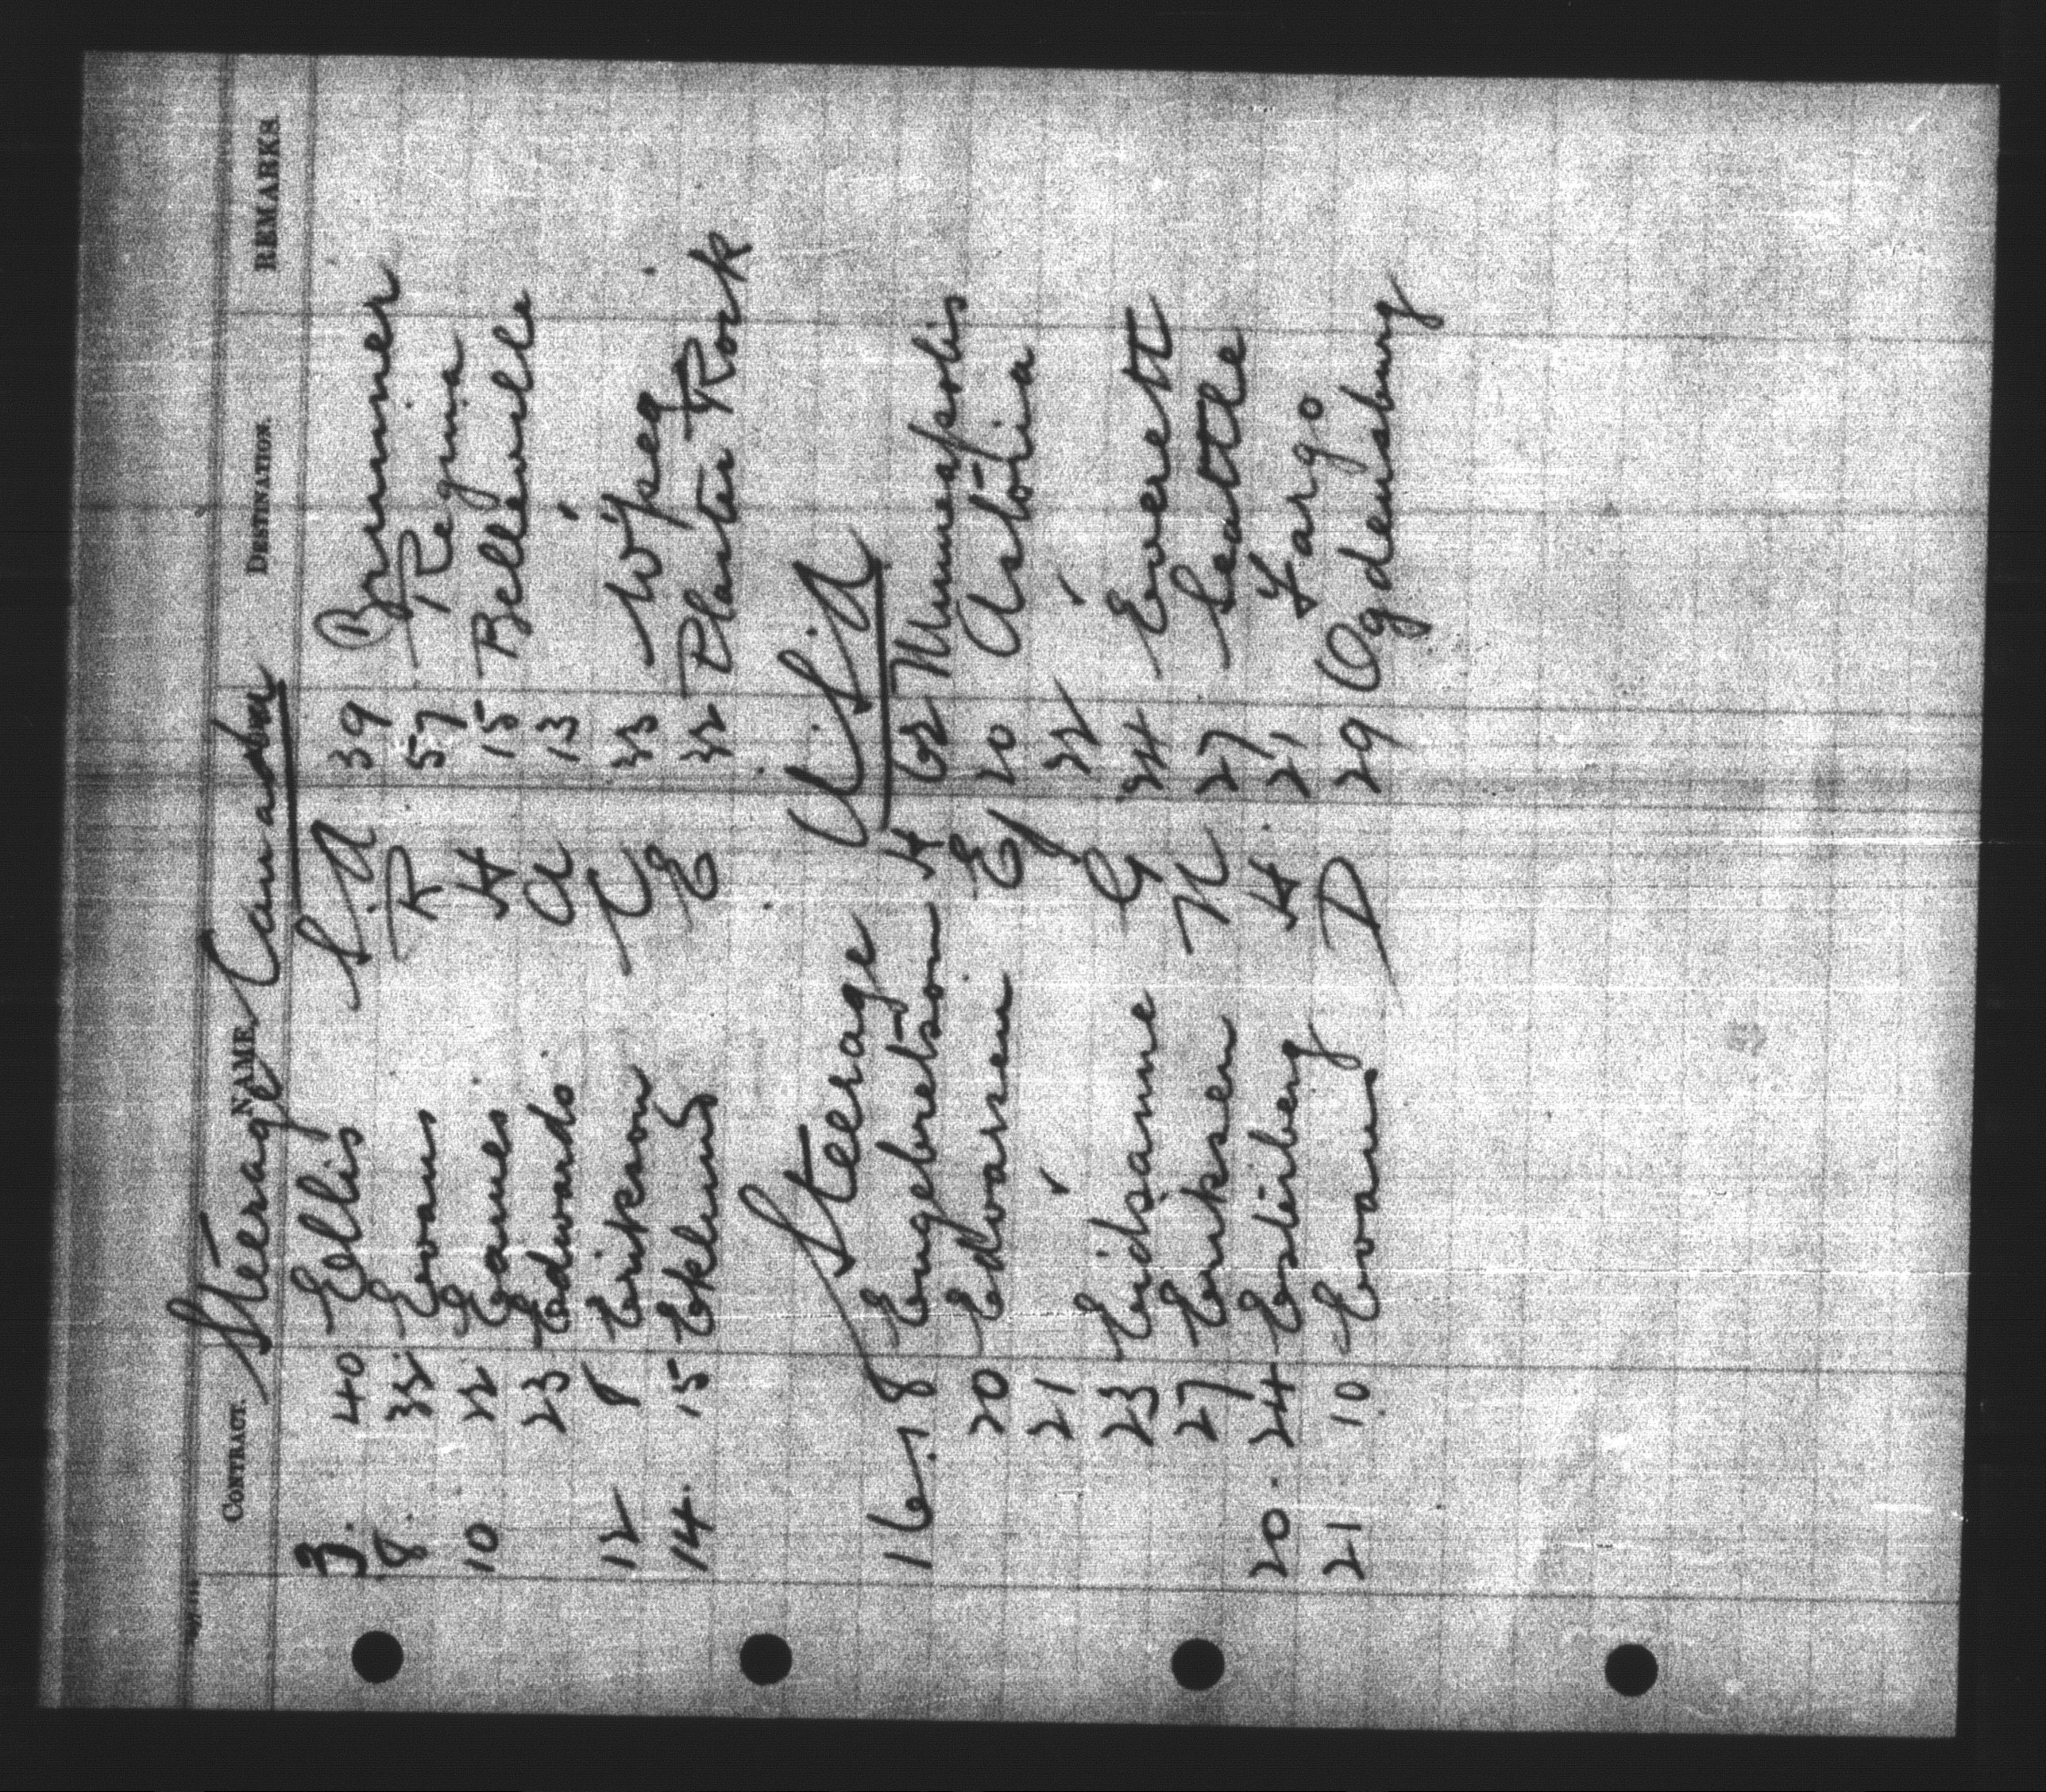 CONTRACT. NAME DESTINATION. REMARKS.
Steerage Canada
3. 40 Ellis S.A 39 Brunner
8. 32 Evans R 57 Regina
10 22 Eames H 15 Belleville
23 Edwards A 13 "
12 8 Erikson C 33 W'peg
14. 15 Eklund E 32 Plaster Rock
Steerage U.S.A
16. 18 Engebretson H 62 Minneapolis
20 Edvarsen E 20 Astoria
21 " J 22 "
23 Eidsanne G 24 Everett
27 Eriksen N 27 Seattle
20. 24 Estirberg H. 21 Fargo
21 10 Evans D 29 Ogdensburg